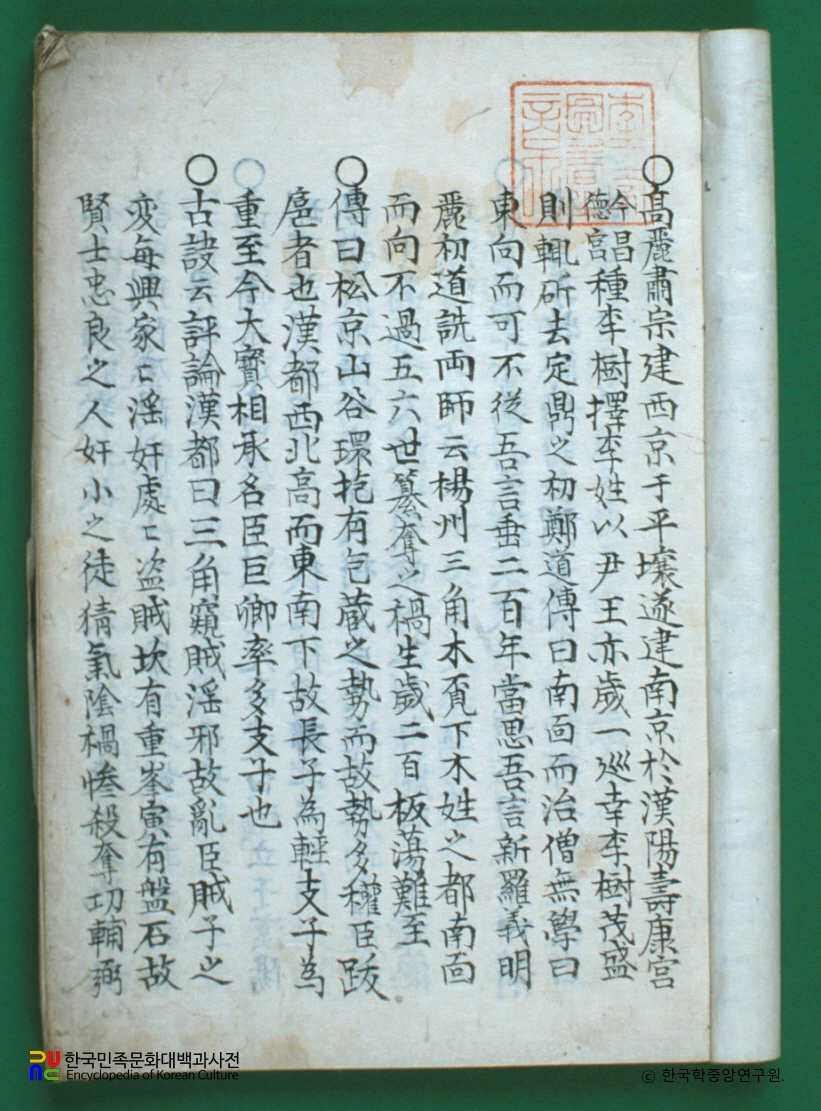 ○高麗肅宗建西京于平壤遂建南京於漢陽壽康宮
今昌德宮種李樹擇李姓以尹王亦歲一巡幸李樹茂盛
則輒斫去定鼎之初鄭道傳曰南面而治僧無學曰
東向而可不從吾言垂二百年當思吾言新羅義明
麗初道詵両師云楊州三角木覓下木姓之都南面
而向不過五六世簒奪之禍生歲二百板蕩難至
○傳曰松京山谷環抱有包藏之勢而故勢多權臣跋
扈者也漢都西北高而東南下故長子為輕支子為
重至今大寶相承名臣巨卿率多支子也
○古諺云評論漢都曰三角窺賊淫邪故亂臣賊子之
変每興家亡淫奸處亡盗賊坎有重峯寅有盤石故
賢士忠良之人奸小之徒猜氣陰禍慘殺奪功輔弼
한국민족문화대백과사전
Encyclopedia of Korean Culture
© 한국학중앙연구원.